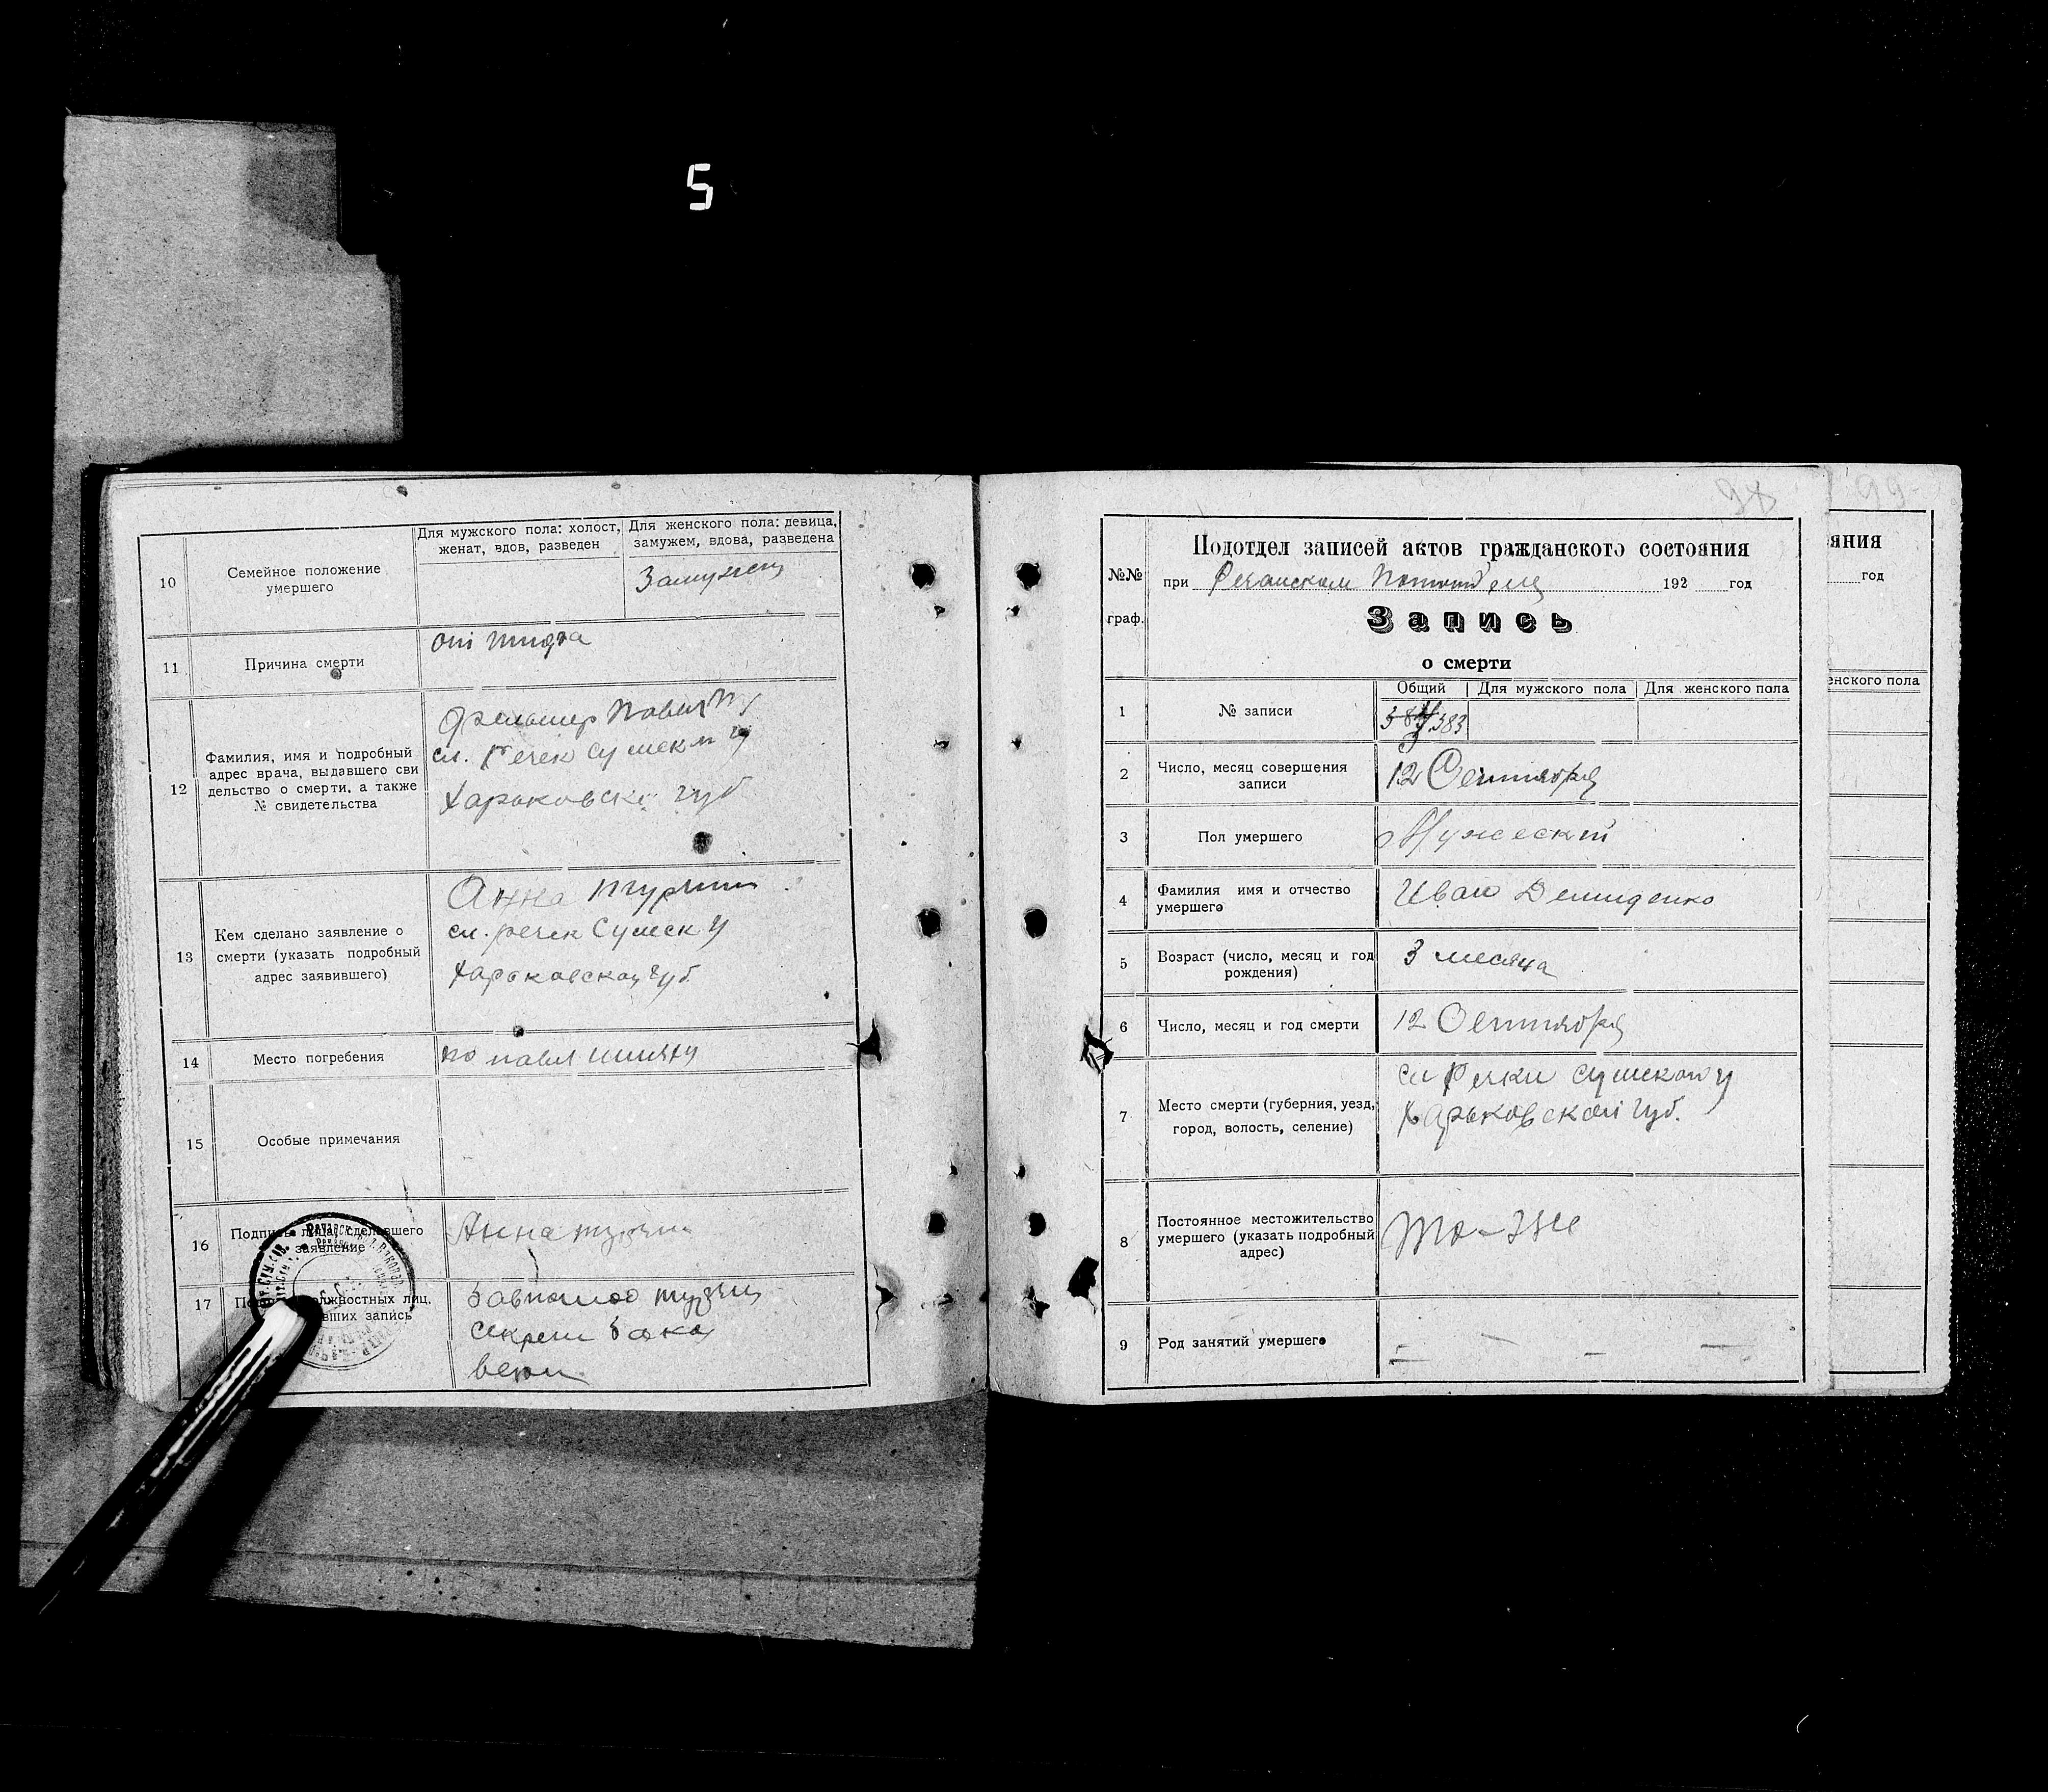 5
10
Семейное положение
умершего
Для мужского пола: холост,
женат, вдов, разведен
Для женского пола: девица,
замужем, вдова, разведена
Замужем
11
Причина смерти
от тифа
12
Фамилия, имя и подробный
адрес врача, выдавшего сви
дельство о смерти, а также
№ свидетельства
Фельшер
сл. Речек Сумск у
Харьковск губ
13
Кем сделано заявление о
смерти (указать подробный
адрес заявившего)
Анна
сл. речек Сумск у
Харьковской губ.
14
Место погребения
15
Особые примечания
16
Подпись лица, сделавшего
заявление
Анна
17
должностных лиц,
вших запись
секрет
98
99
№№
граф.
Подотдел записей актов гражданского состояния
при Речанском 192 год
Запись
о смерти
1
№ записи
Общий
Для мужского пола
Для женского пола
383
2
Число, месяц совершения
записи
12 Сентября
3
Пол умершего
Мужеский
4
Фамилия имя и отчество
умершего
Иван Демиденко
5
Возраст (число, месяц и год
рождения)
3 месяца
6
Число, месяц и год смерти
12 Сентября
7
Место смерти (губерния, уезд,
город, волость, селение)
сл Речки Сумского у
Харьковской губ.
8
Постоянное местожительство
умершего (указать подробный
адрес)
9
Род занятий умершего
яния
год
енского пола